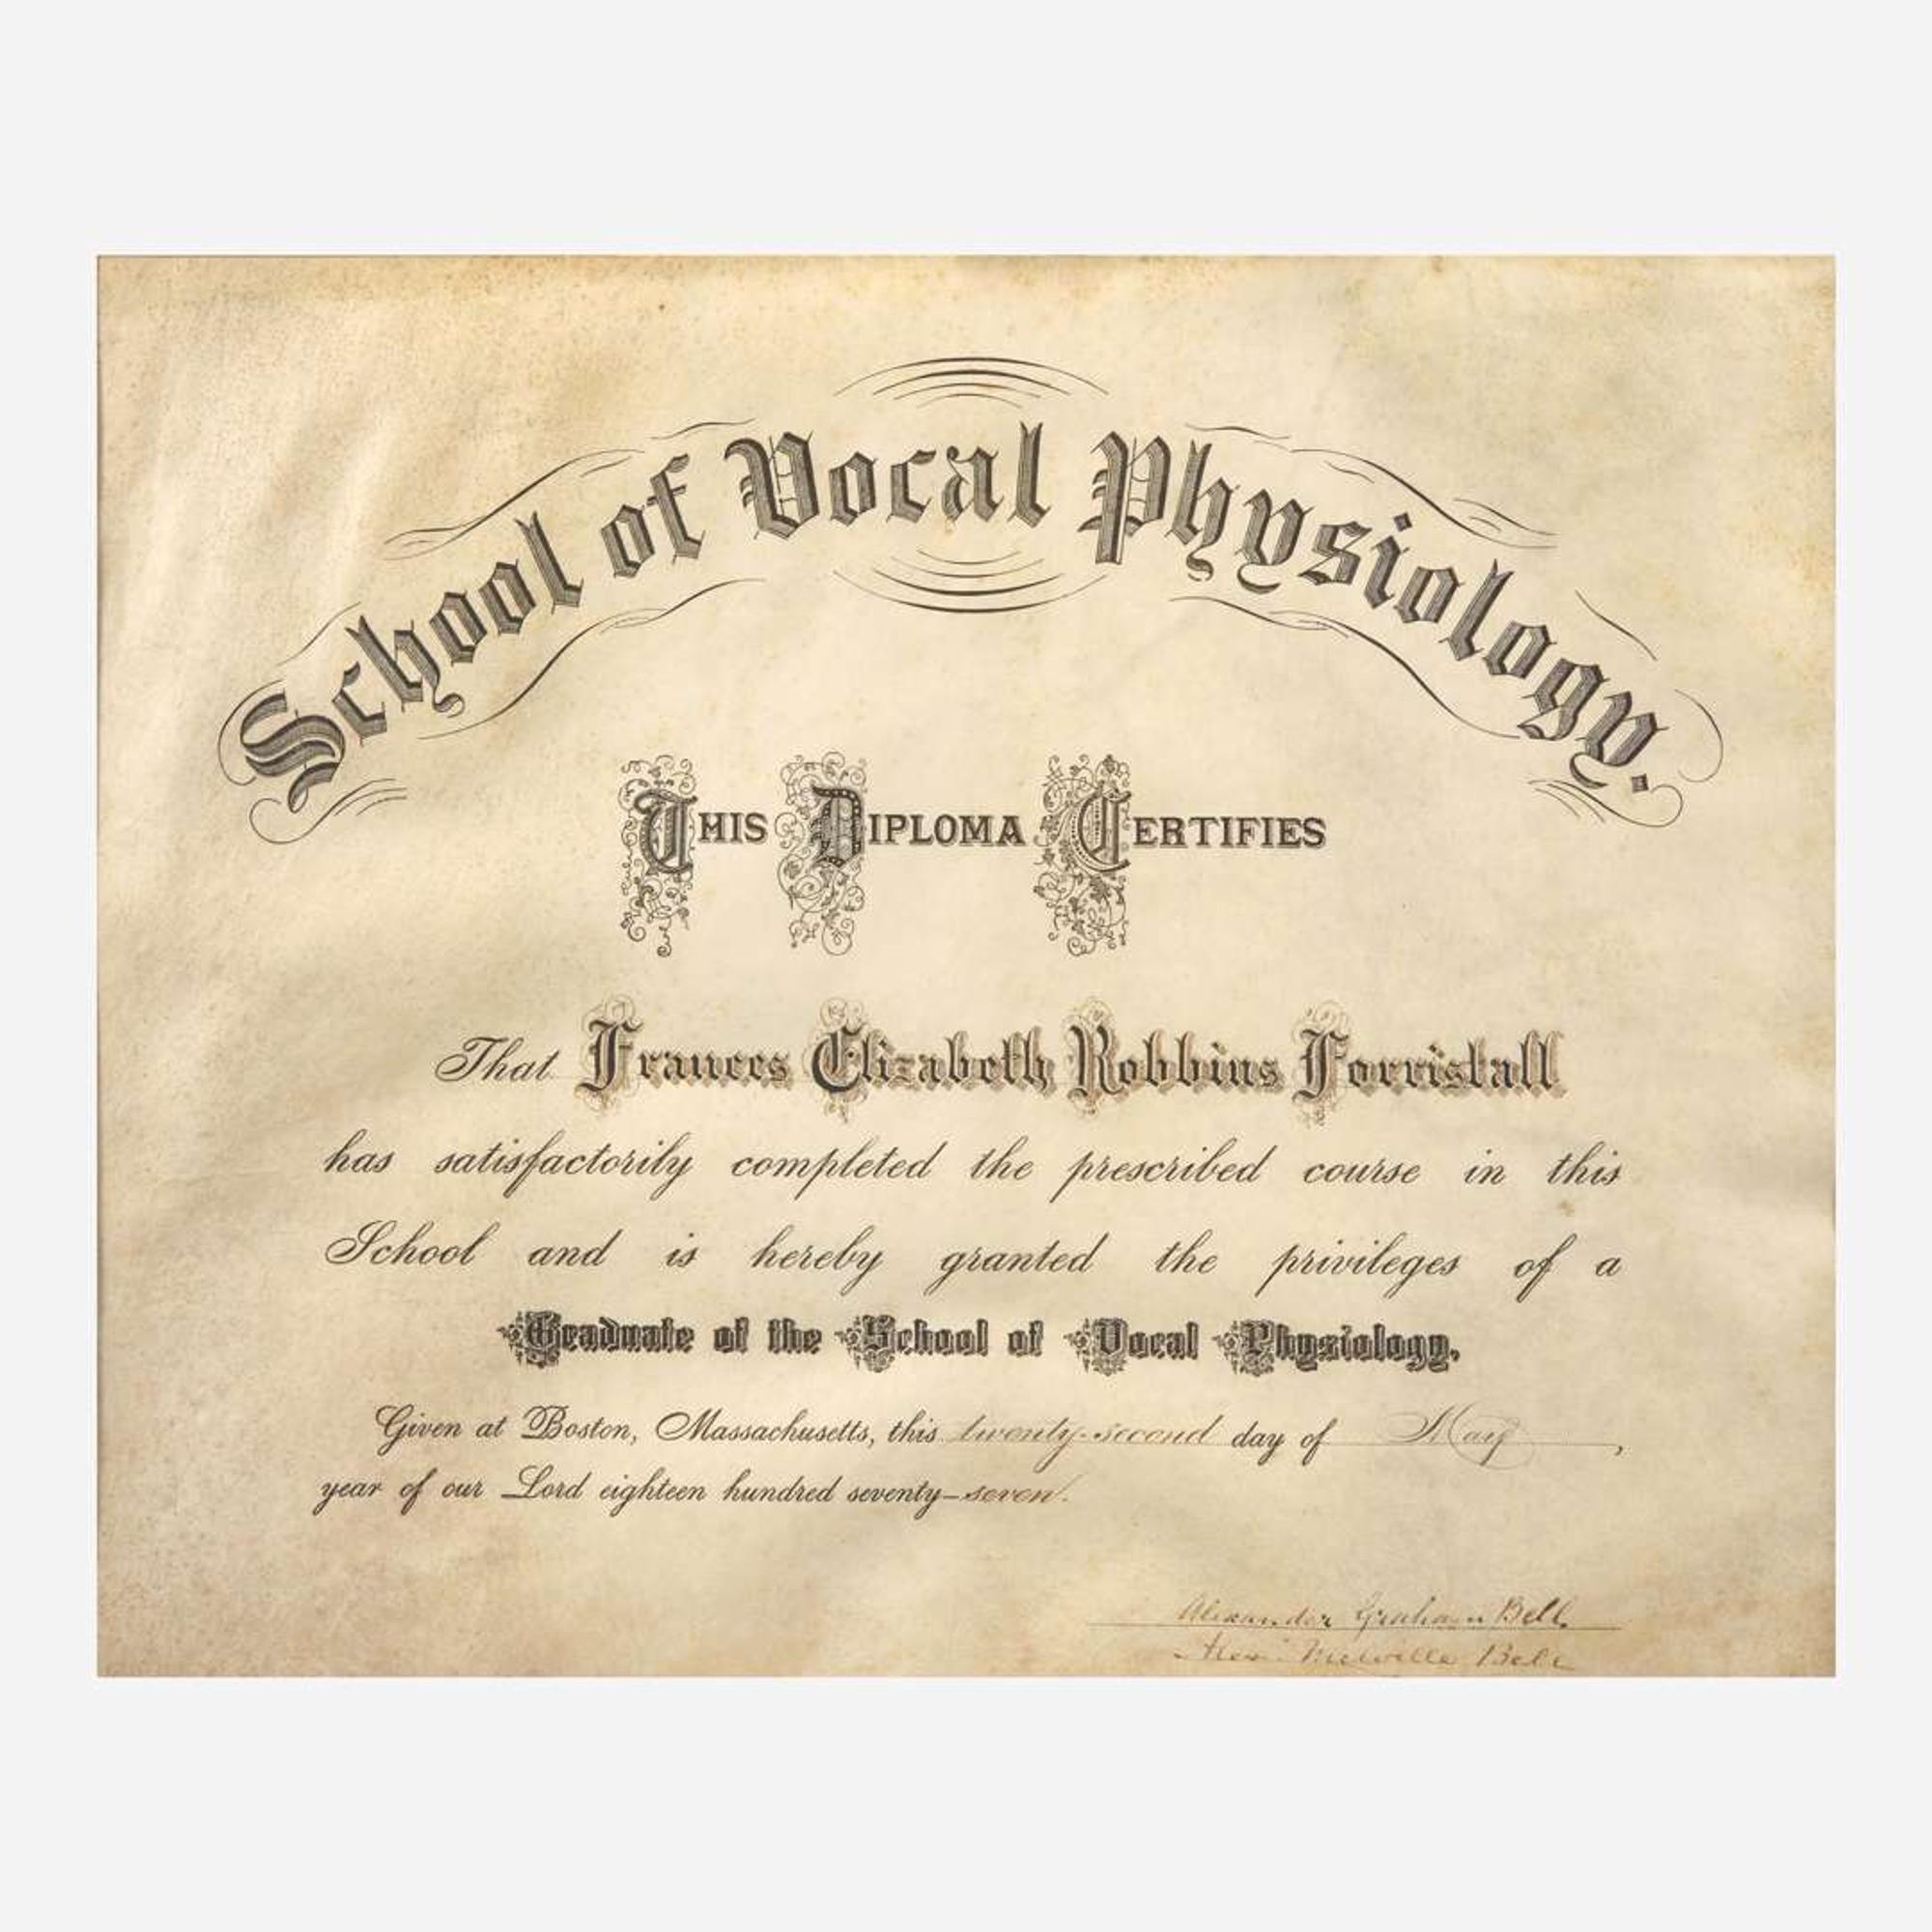 School of Vocal Physiology.
THIS DIPLOMA CERTIFIES
That Frances Elizabeth Robbins Forristall
has satisfactorily completed the prescribed course in this
School and is hereby granted the privileges of a
Graduate of the School of Vocal Physiology.
Given at Boston, Massachusetts, this twenty-second day of May,
year of our Lord eighteen hundred seventy-seven.
Alexander Graham Bell.
Alex. Melville Bell